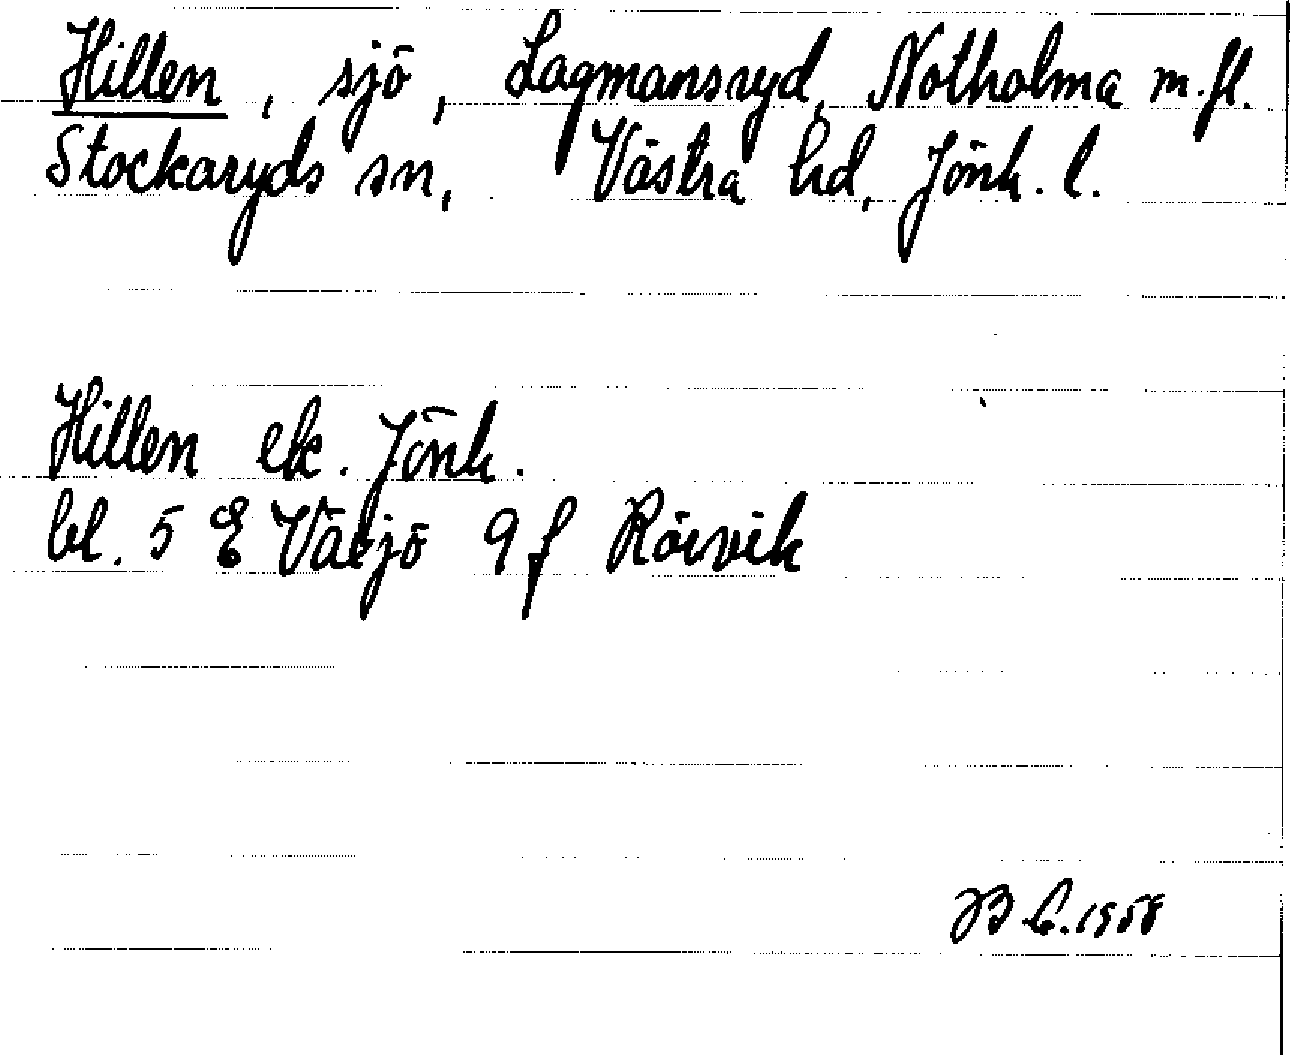 Hillen, sjö, Lagmansryd, Notholma m.fl.
Stockaryds sn, Västra hd, Jönk. l.
Hillen ek. Jönk.
bl. 5 E Växjö 9 f Rörvik
1958